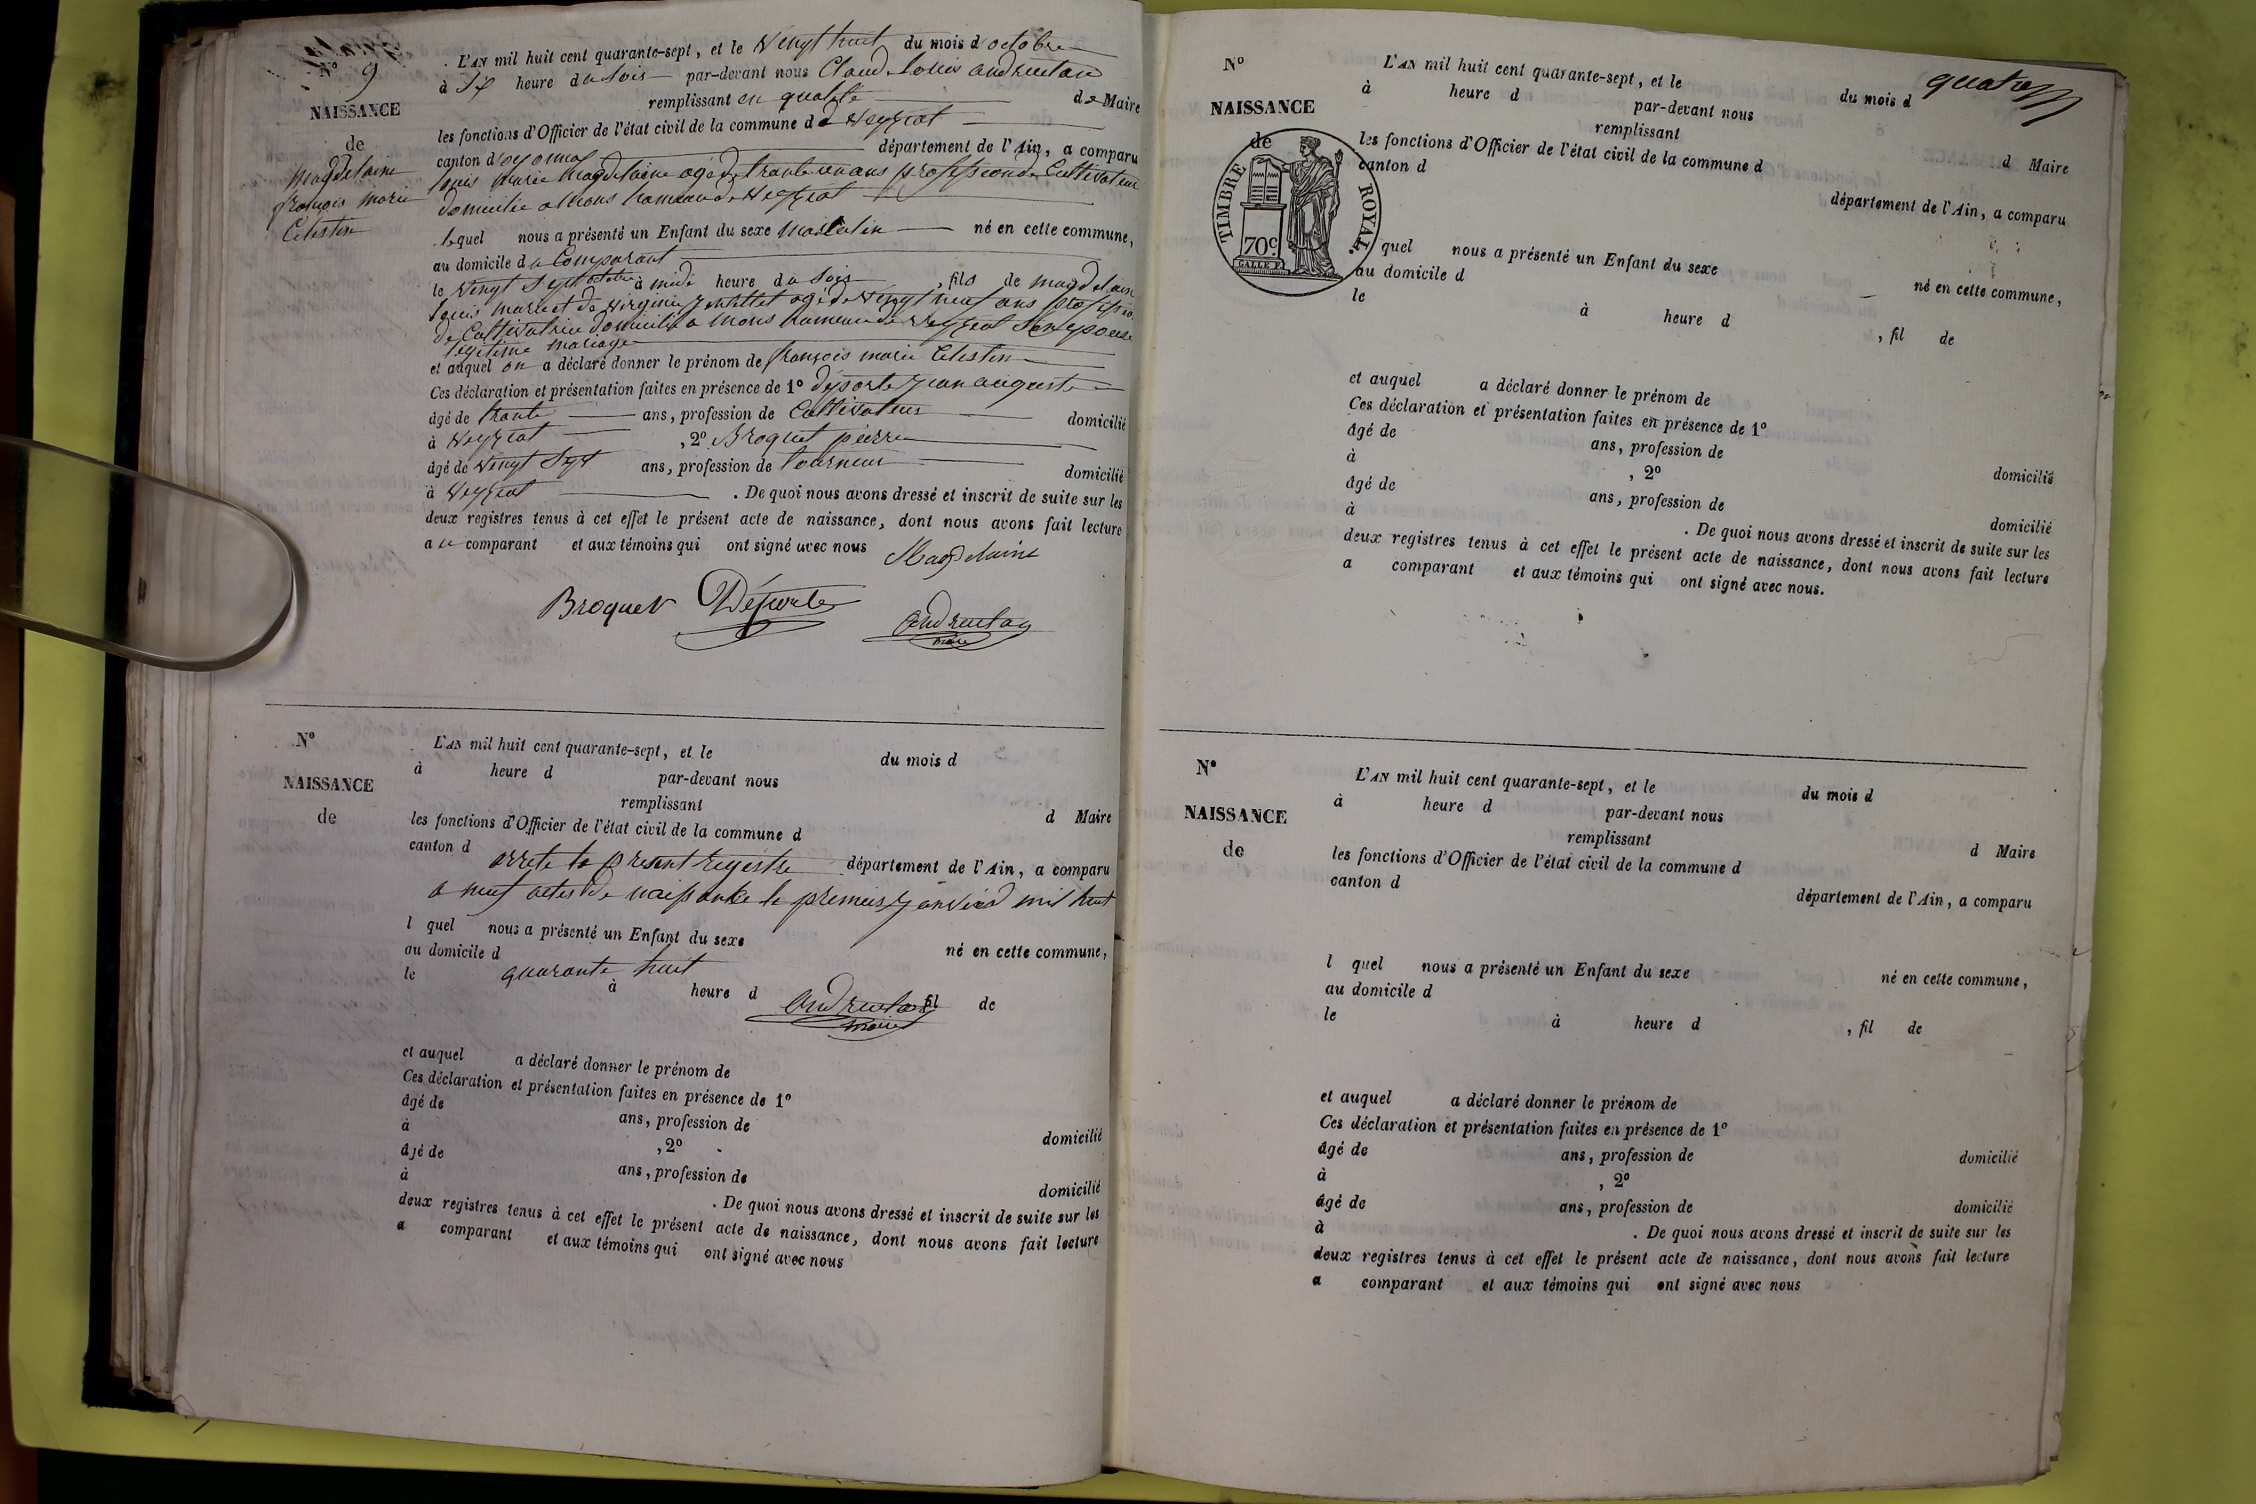 N° 9
NAISSANCE
de
Magdelaine
françois marie
Celestin
L'AN mil huit cent quarante-sept, et le vengt huit du mois d'octobre
à Six heure du soir par-devant nous Claude Louis andruetan
remplissant en qualité de Maire
les fonctions d'Officier de l'état civil de la commune de veyziat
canton d'oyonnax département de l'Ain, a comparu
louis marie Magdelaine agé de trante un ans profession de Cultivateur
domicilie a Mons hameau de Veyziat
lequel nous a présenté un Enfant du sexe Masculin né en cette commune,
au domicile du Comparant
le vengt Sept octobre à midi heure du soir, fils de magdelaine
louis marie et de virginie agé de vengt neuf ans profession
de Cultivatrice domicilie a Mons hameau de Veyziat Son epouse
legitime mariage
et auquel on a déclaré donner le prénom de françois marie Celestin
Ces déclaration et présentation faites en présence de 1° déporte jean auguste
âgé de trante ans, profession de Cultivateur domicilié
à veyziat, 2° Broquet pierre
âgé de vengt Sept ans, profession de tourneur domicilié
à Veyziat. De quoi nous avons dressé et inscrit de suite sur les
deux registres tenus à cet effet le présent acte de naissance, dont nous avons fait lecture
au comparant et aux témoins qui ont signé avec nous Magdelaine
Broquet Déporte andruetan
maire
N°
NAISSANCE
de
L'AN mil huit cent quarante-sept, et le du mois d
à heure d par-devant nous
remplissant d Maire
les fonctions d'Officier de l'état civil de la commune d
canton d département de l'Ain, a comparu
arrete le present registre
a neuf actes de naissance le premier janvier mil huit
l quel nous a présenté un Enfant du sexe né en cette commune,
au domicile d
quarante huit
le à heure d fil de
andruetan
maire
et auquel a déclaré donner le prénom de
Ces déclaration et présentation faites en présence de 1°
âgé de ans, profession de domicilié
à , 2°
âgé de ans, profession de domicilié
à . De quoi nous avons dressé et inscrit de suite sur les
deux registres tenus à cet effet le présent acte de naissance, dont nous avons fait lecture
a comparant et aux témoins qui ont signé avec nous
quatre
N°
NAISSANCE
de
TIMBRE ROYAL.
70c
L'AN mil huit cent quarante-sept, et le du mois d
à heure d par-devant nous
remplissant d Maire
les fonctions d'Officier de l'état civil de la commune d
canton d département de l'Ain, a comparu
quel nous a présenté un Enfant du sexe né en cette commune,
au domicile d
le à heure d , fil de
et auquel a déclaré donner le prénom de
Ces déclaration et présentation faites en présence de 1°
âgé de ans, profession de domicilié
à , 2°
âgé de ans, profession de domicilié
à . De quoi nous avons dressé et inscrit de suite sur les
deux registres tenus à cet effet le présent acte de naissance, dont nous avons fait lecture
a comparant et aux témoins qui ont signé avec nous.
N°
NAISSANCE
de
L'AN mil huit cent quarante-sept, et le du mois d
à heure d par-devant nous
remplissant d Maire
les fonctions d'Officier de l'état civil de la commune d
canton d département de l'Ain, a comparu
l quel nous a présenté un Enfant du sexe né en cette commune,
au domicile d
le à heure d , fil de
et auquel a déclaré donner le prénom de
Ces déclaration et présentation faites en présence de 1°
âgé de ans, profession de domicilié
à , 2°
âgé de ans, profession de domicilié
à . De quoi nous avons dressé et inscrit de suite sur les
deux registres tenus à cet effet le présent acte de naissance, dont nous avons fait lecture
a comparant et aux témoins qui ont signé avec nous